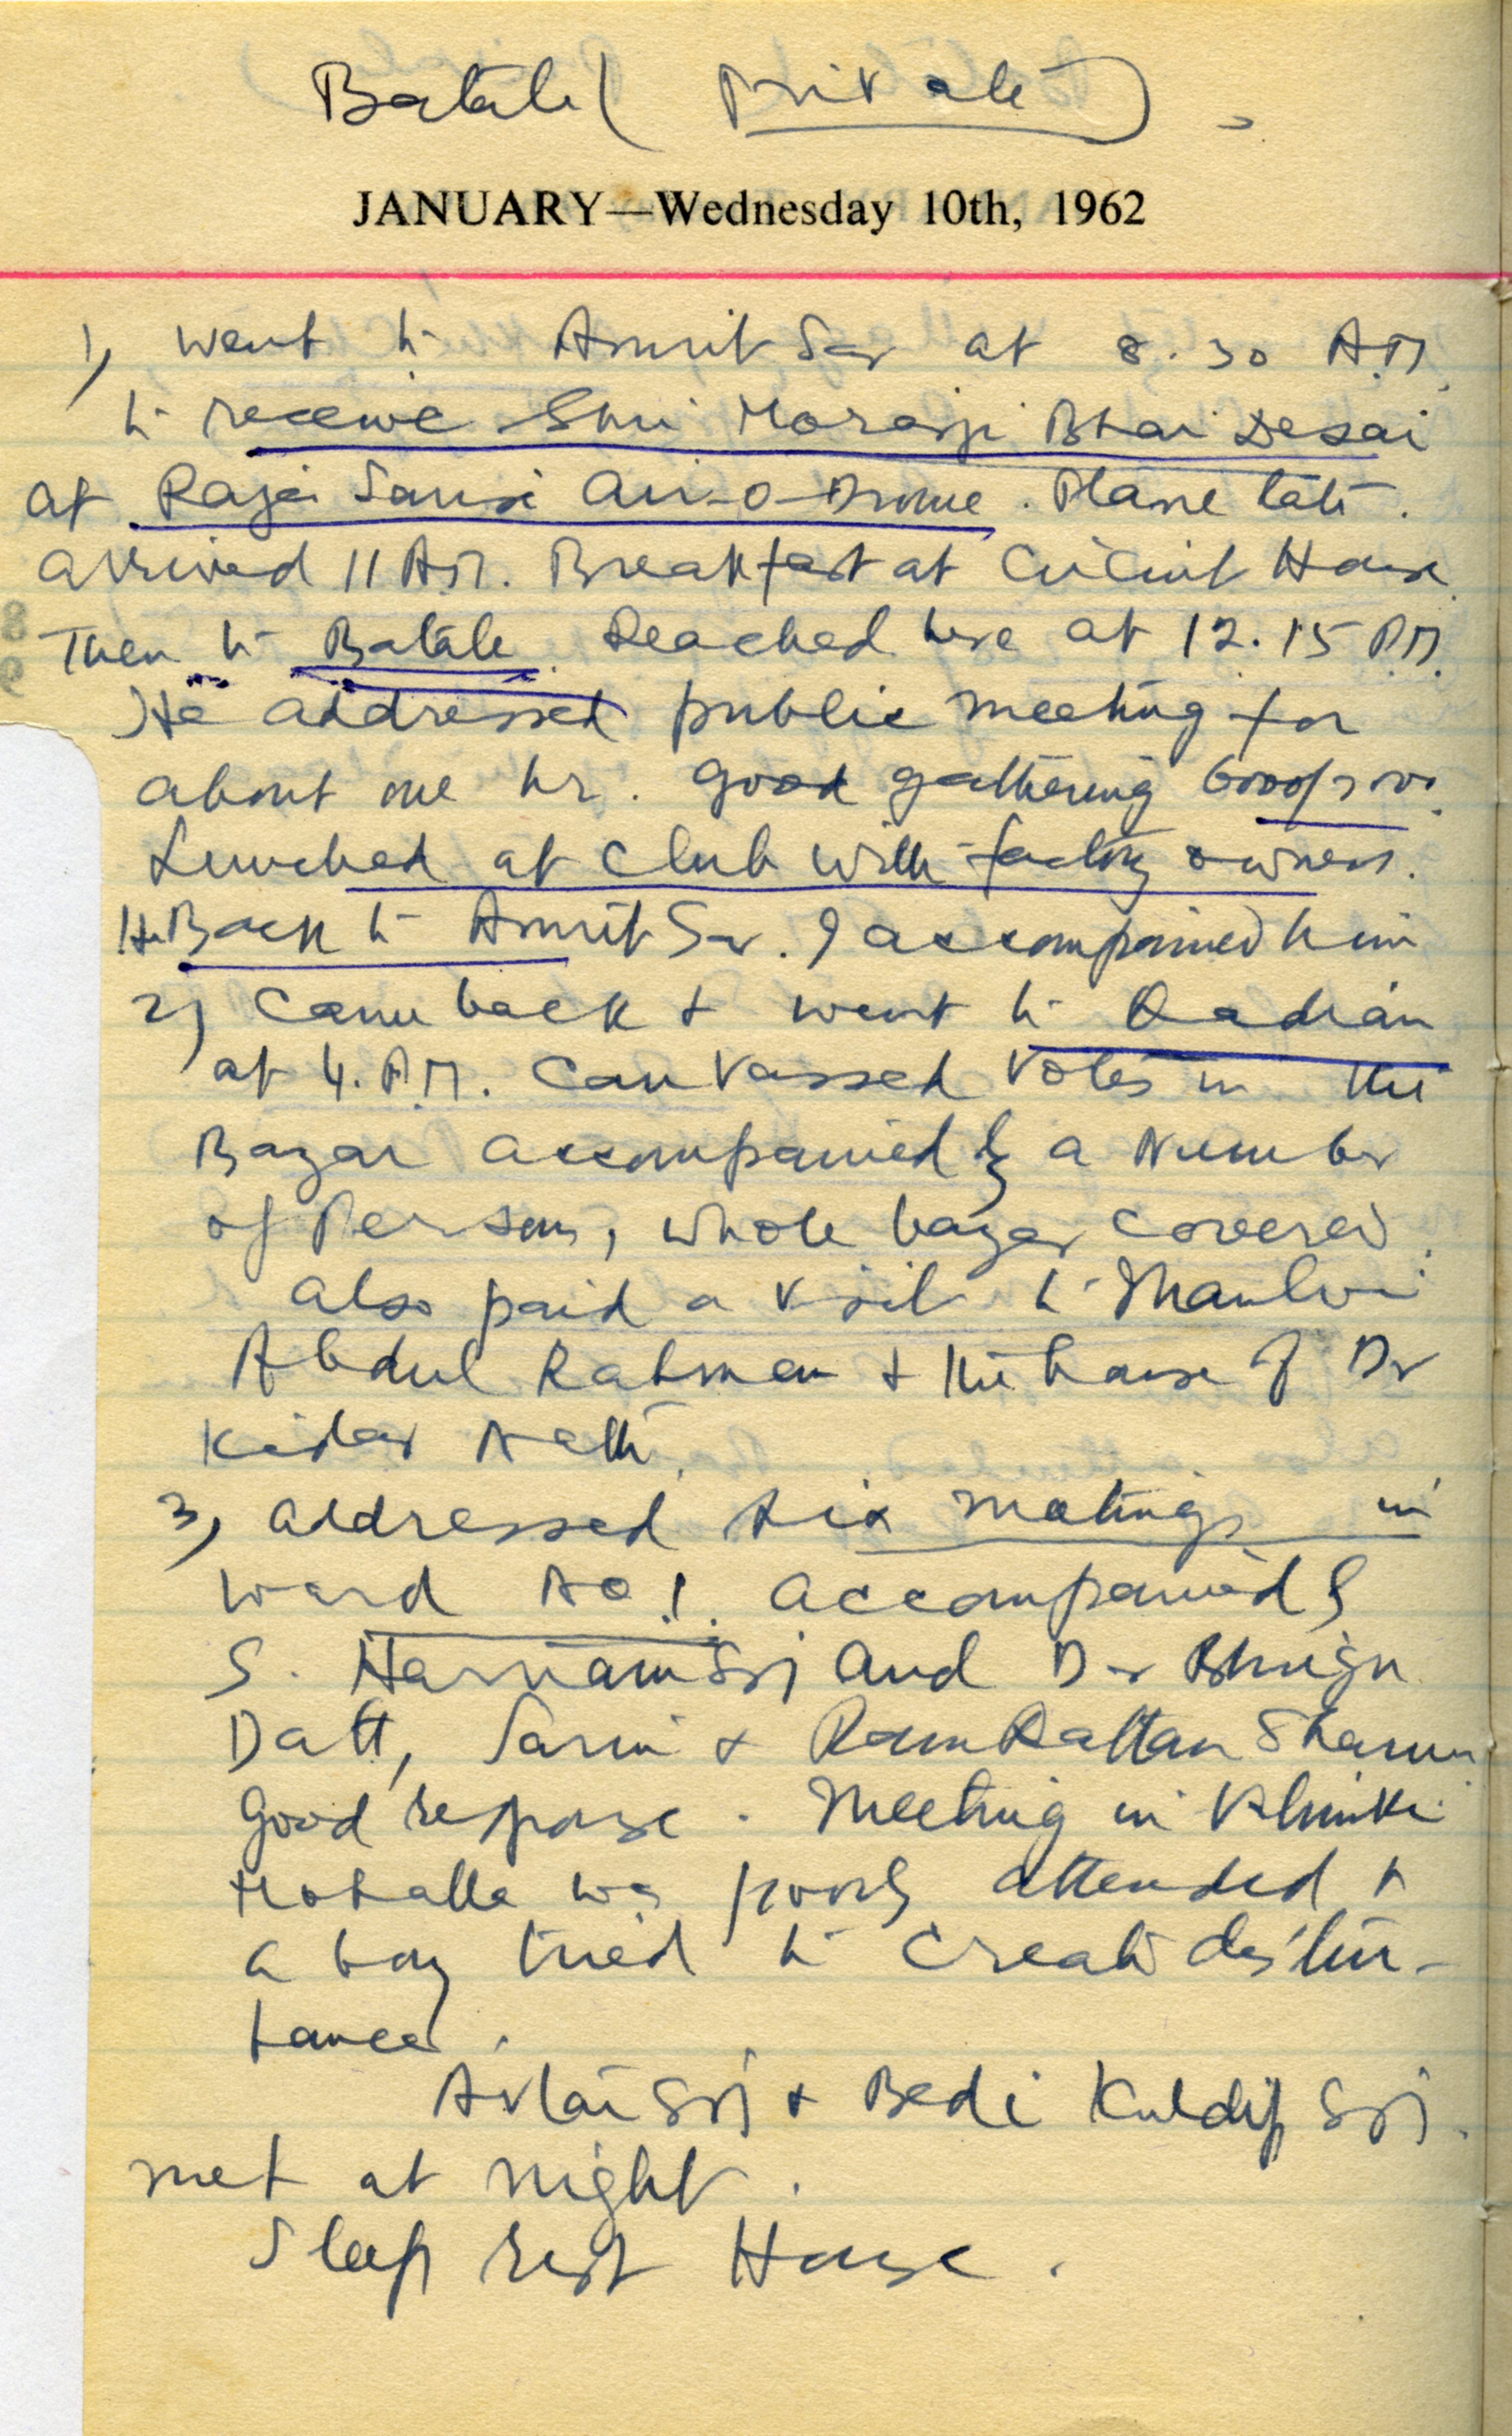 Batala (Private)
JANUARY—Wednesday 10th, 1962
1) Went to Amritsar at 8.30 A.M.
to receive Shri Morarji Bhai Desai
at Raja Sansi Air-o-Drome. Plane late.
arrived 11 A.M. Breakfast at Circuit House
Then to Batala. Reached here at 12.15 P.M.
He addressed public meeting for
about one hr. Good gathering
Lunched at Club with factory owners.
He Back to Amritsar. I accompanied him
2) Came back & went to Qadian
at 4. P.M. Canvassed Votes in the
Bazar accompanied by a Number
of Persons, whole bazar covered.
also paid a visit to Maulvi
Abdul Rahman & the house of Dr
Kidar Nath.
3) addressed six meetings in
ward No 1. accompanied by
S. Harnam Singh and Dr Bhrigu
Datt, Sarin & Ram Rattan Sharma
Good response. Meeting in Valmiki
Mohalla was poorly attended &
a boy tried to create distur-
bance.
Avtar Singh & Bedi Kuldip Singh.
met at night.
Sleep Rest House.